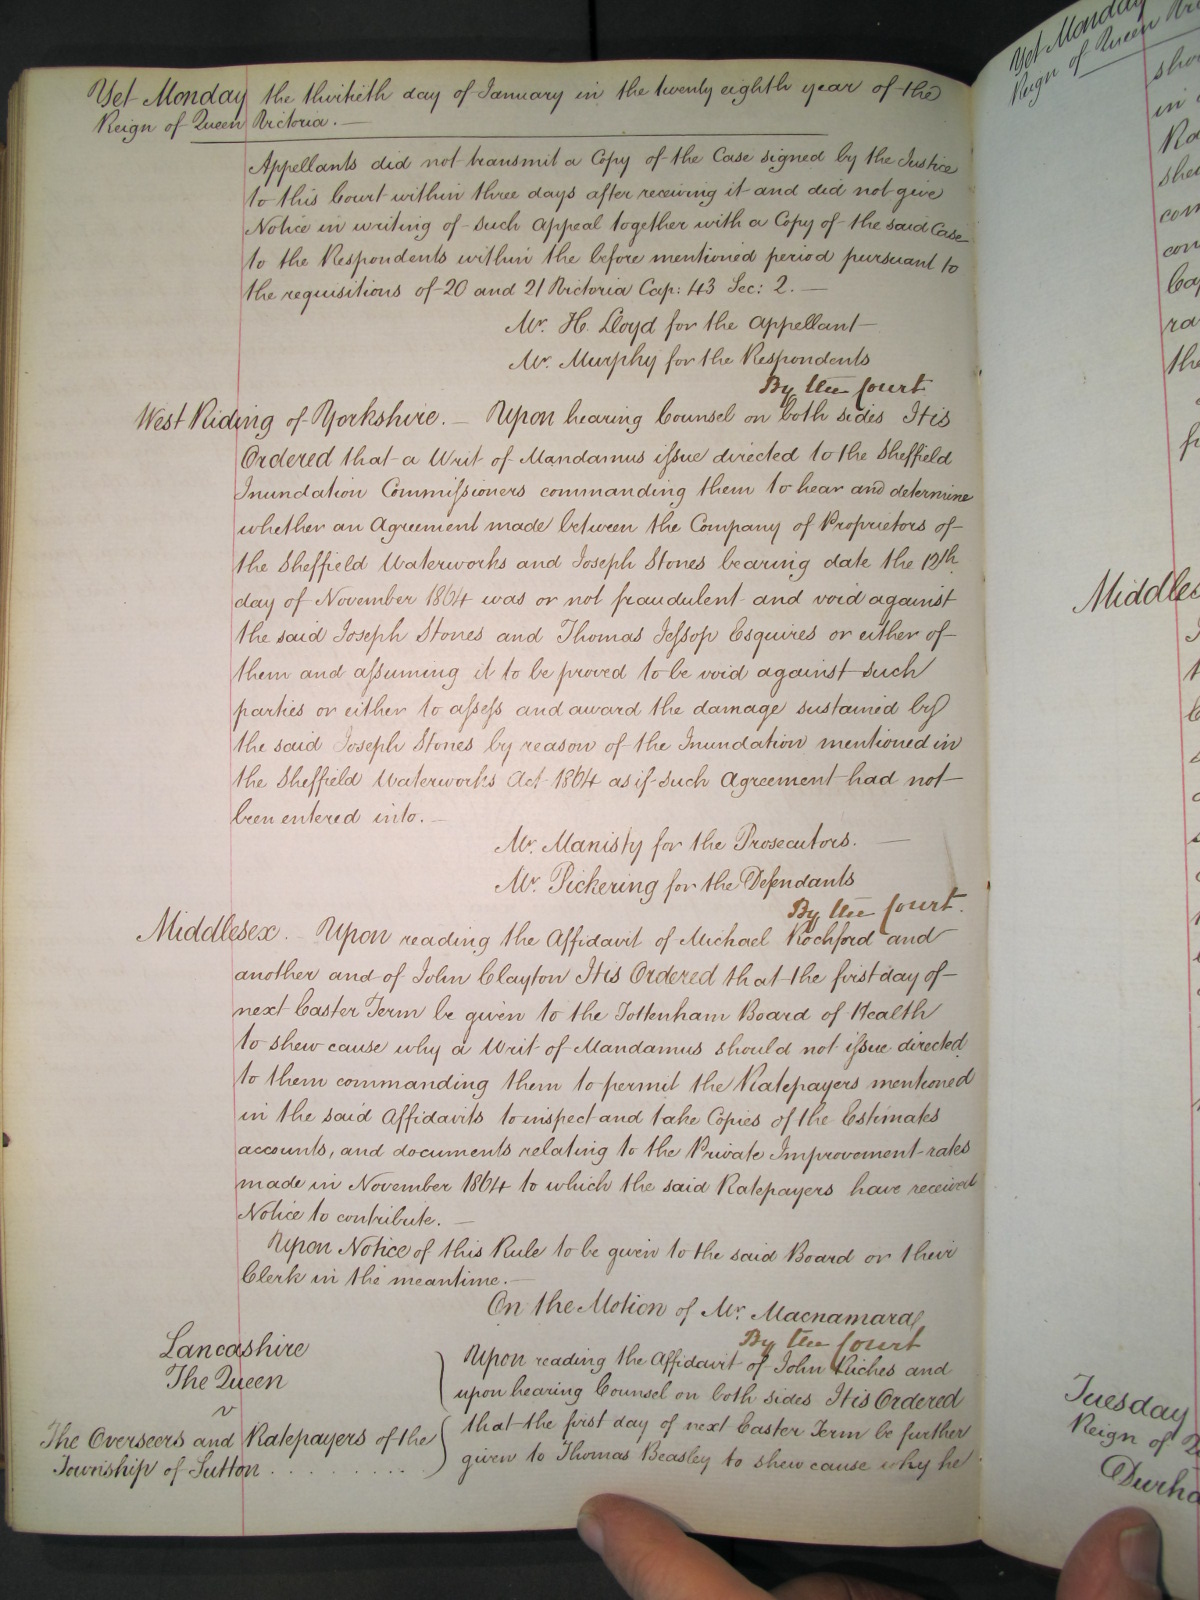 Yet Monday the thirtieth day of January in the twenty eighth year of the
Reign of Queen Victoria. —
Appellants did not transmit a Copy of the Case signed by the Justice
to this Court within three days after receiving it and did not give
Notice in writing of such Appeal together with a Copy of the said Case
to the Respondents within the before mentioned period pursuant to
the requisitions of 20 and 21 Victoria Cap: 43 Sec: 2. —
Mr. H. Lloyd for the Appellant
Mr. Murphy for the Respondents
By the Court
West Riding of Yorkshire. — Upon hearing Counsel on both sides It is
Ordered that a Writ of Mandamus issue directed to the Sheffield
Inundation Commissioners commanding them to hear and determine
whether an Agreement made between the Company of Proprietors of
the Sheffield Waterworks and Joseph Stones bearing date the 12th
day of November 1864 was or not fraudulent and void against
the said Joseph Stones and Thomas Jessop Esquires or either of
them and assuming it to be proved to be void against such
parties or either to assess and award the damage sustained by
the said Joseph Stones by reason of the Inundation mentioned in
the Sheffield Waterworks Act 1864 as if such Agreement had not
been entered into. —
Mr. Manisty for the Prosecutors. —
Mr. Pickering for the Defendants
By the Court.
Middlesex. — Upon reading the Affidavit of Michael Rochford and
another and of John Clayton It is Ordered that the first day of
next Easter Term be given to the Tottenham Board of Health
to shew cause why a Writ of Mandamus should not issue directed
to them commanding them to permit the Ratepayers mentioned
in the said Affidavits to inspect and take Copies of the Estimates
accounts, and documents relating to the Private Improvement rates
made in November 1864 to which the said Ratepayers have received
Notice to contribute. —
Upon Notice of this Rule to be given to the said Board or their
Clerk in the meantime. —
On the Motion of Mr. Macnamara
By the Court
Lancashire
The Queen
v
The Overseers and Ratepayers of the
Township of Sutton . . . . . . . . . .
Upon reading the Affidavit of John Riches and
upon hearing Counsel on both sides It is Ordered
that the first day of next Easter Term be further
given to Thomas Beasley to shew cause why he
Yet Monday
Reign of Queen
in
the
Tuesday
Reign of